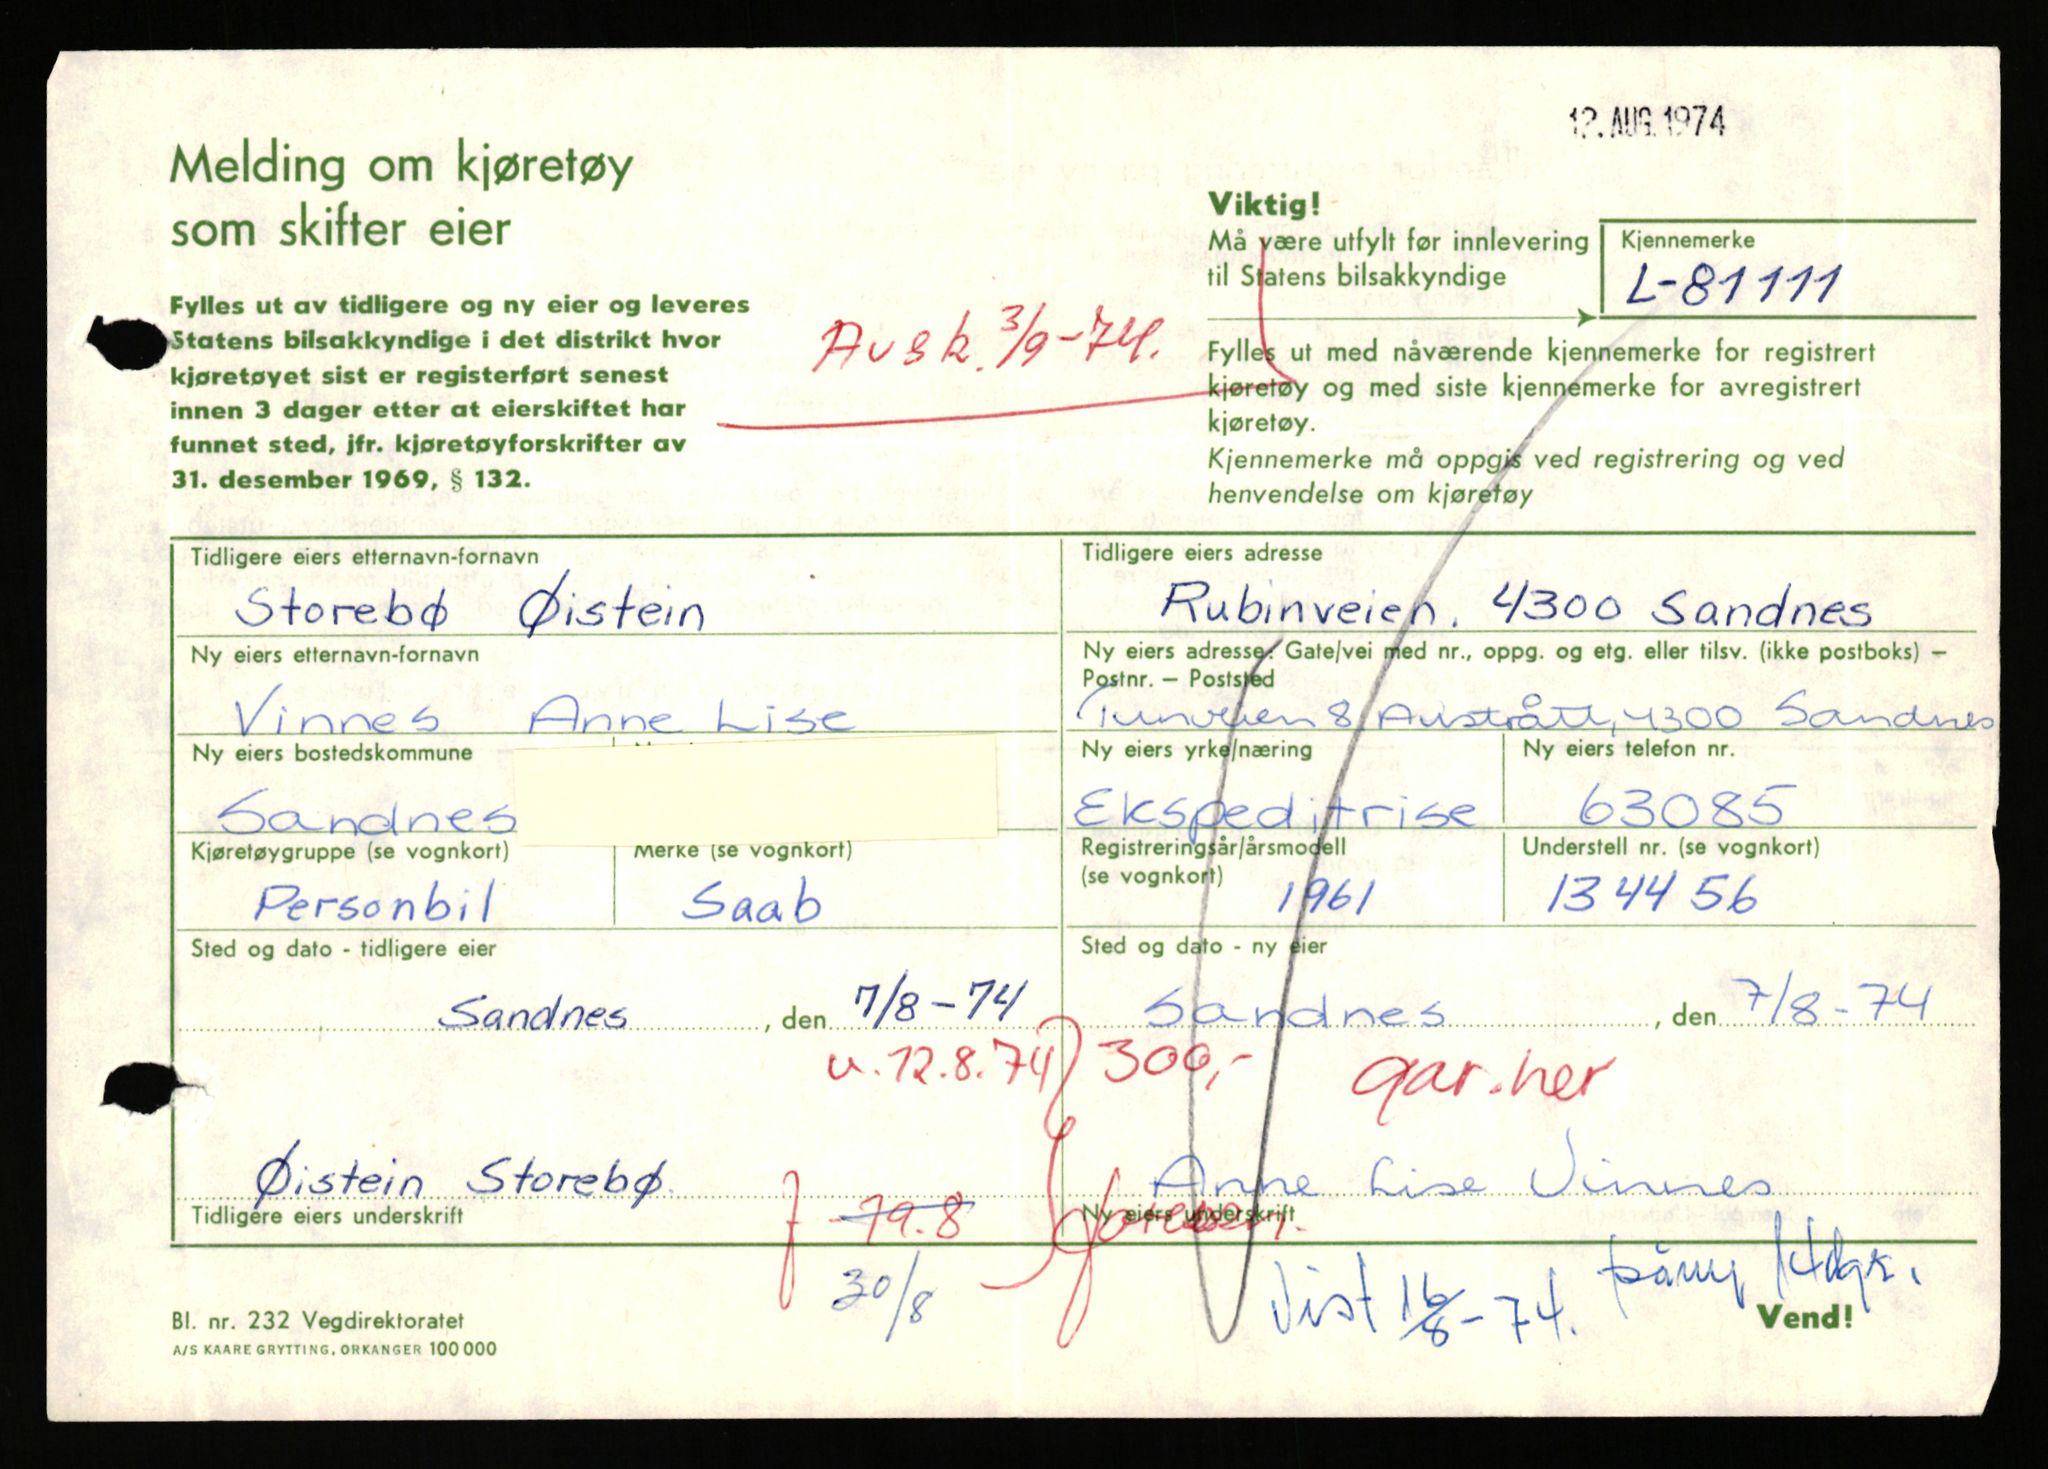 12. AUG. 1974
Melding om kjøretøy
som skifter eier
Fylles ut av tidligere og ny eier og leveres
Statens bilsakkyndige i det distrikt hvor
kjøretøyet sist er registerført senest
innen 3 dager etter at eierskiftet har
funnet sted, jfr. kjøretøyforskrifter av
31. desember 1969, § 132.
Avsk. 3/9-74.
Viktig!
Må være utfylt før innlevering
til Statens bilsakkyndige
Kjennemerke
L-81111
Fylles ut med nåværende kjennemerke for registrert
kjøretøy og med siste kjennemerke for avregistrert
kjøretøy.
Kjennemerke må oppgis ved registrering og ved
henvendelse om kjøretøy
Tidligere eiers etternavn-fornavn
Storebø Øistein
Tidligere eiers adresse
Rubinveien, 4300 Sandnes
Ny eiers etternavn-fornavn
Vinnes Anne Lise
Ny eiers adresse: Gate/vei med nr., oppg. og etg. eller tilsv. (ikke postboks) –
Postnr. – Poststed
Tunveien 8, Austrått, 4300 Sandnes
Ny eiers bostedskommune
Sandnes
Ny eiers yrke/næring
Ekspeditrise
Ny eiers telefon nr.
63085
Kjøretøygruppe (se vognkort)
Personbil
Merke (se vognkort)
Saab
Registreringsår/årsmodell
(se vognkort)
1961
Understell nr. (se vognkort)
134456
Sted og dato - tidligere eier
Sandnes, den 7/8-74
Sted og dato - ny eier
Sandnes, den 7/8-74
u. 12.8.74 300,- gar.her
Øistein Storebø
Tidligere eiers underskrift
Anne Lise Vinnes
Ny eiers underskrift
19.8
30/8
Vist 16/8-74.
Bl. nr. 232 Vegdirektoratet
A/S KAARE GRYTTING, ORKANGER 100 000
Vend!